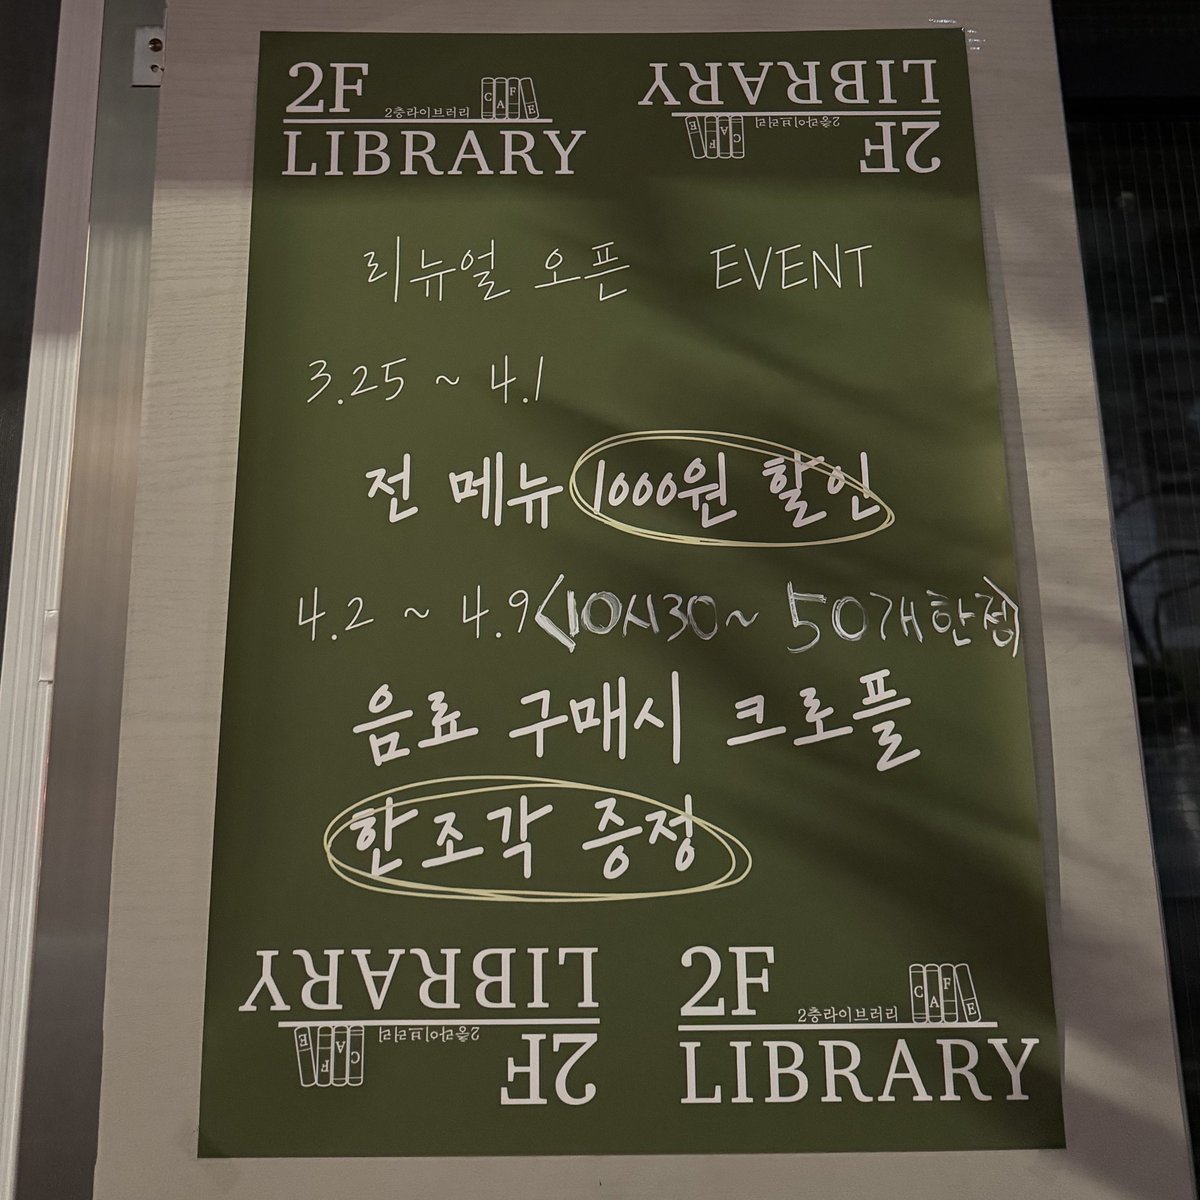 2F
2층라이브러리
CAFE
LIBRARY
LIBRARY
2층라이브러리
CAFE
2F
리뉴얼 오픈 EVENT
3.25 ~ 4.1
전 메뉴 1000원 할인
4.2 ~ 4.9 <10시30~ 50개한정>
음료 구매시 크로플
한조각 증정
LIBRARY
2층라이브러리
CAFE
2F
2F
2층라이브러리
CAFE
LIBRARY